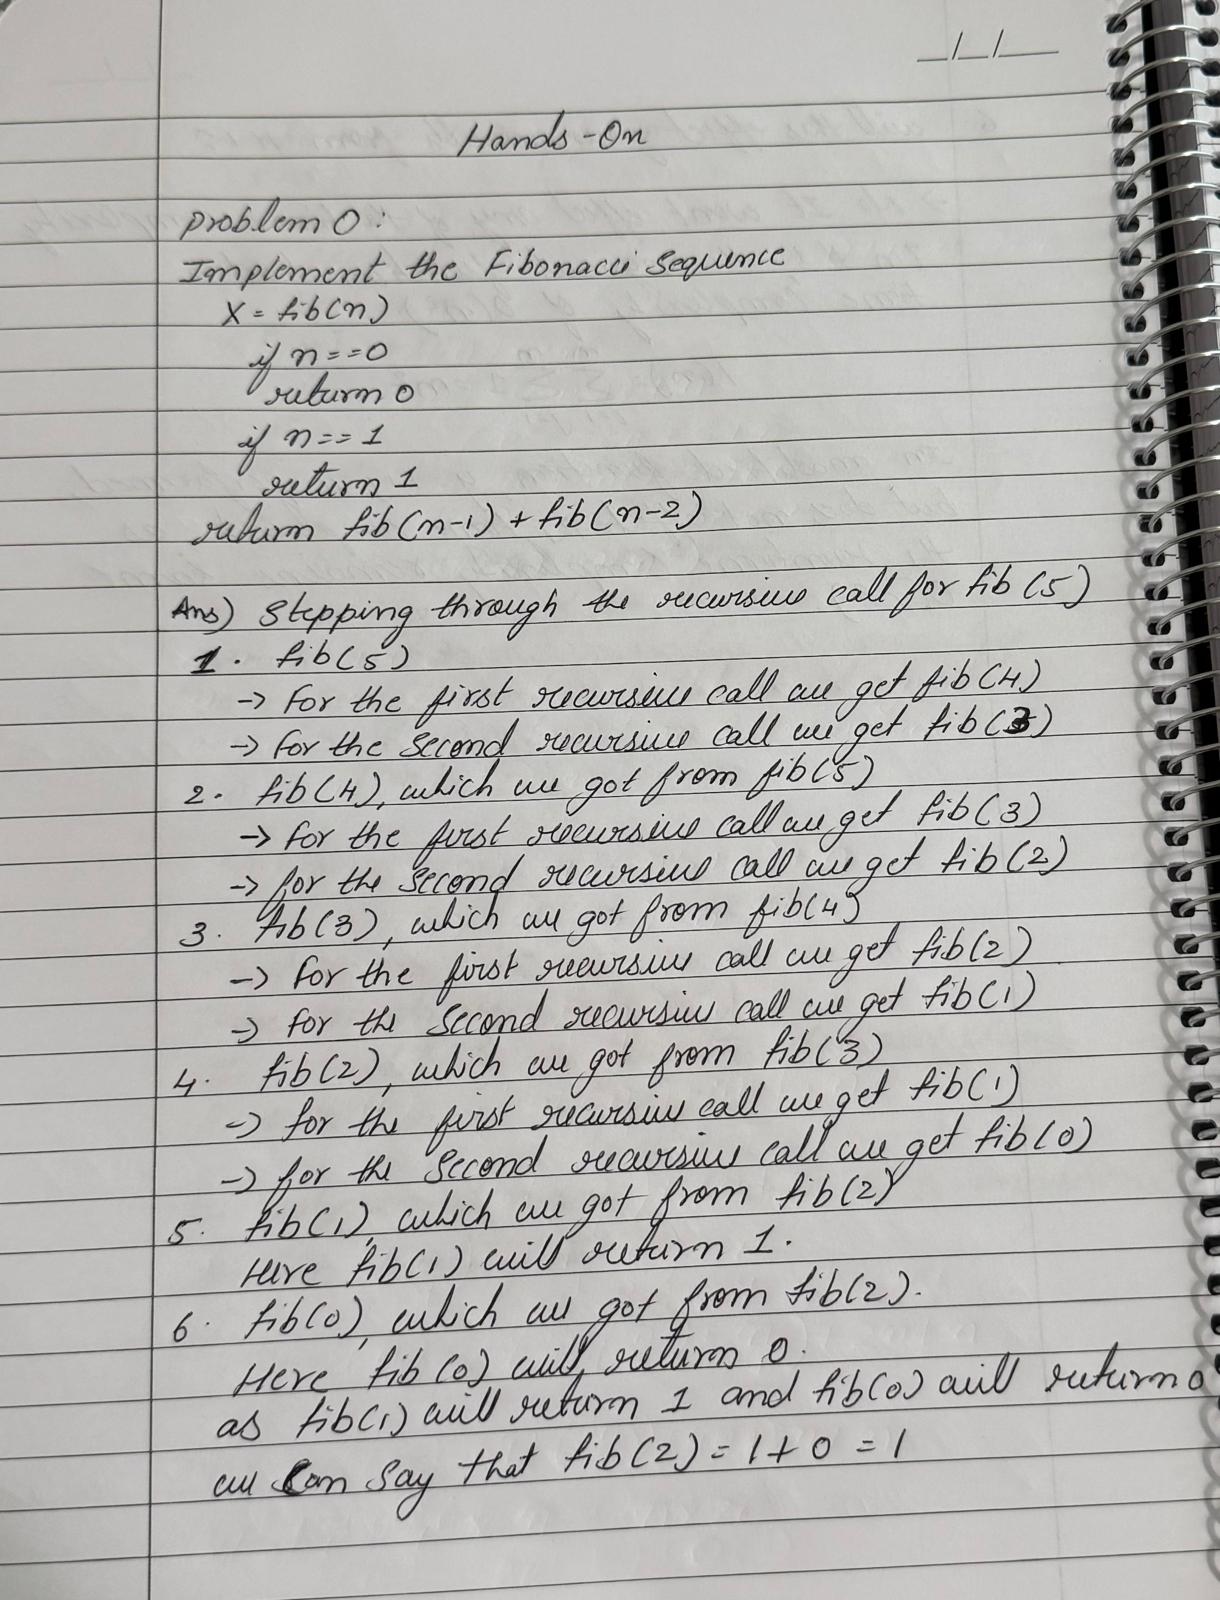 Hands-On
problem 0:
Implement the Fibonacci Sequence
X = fib(n)
if n==0
return 0
if n==1
return 1
return fib(n-1) + fib(n-2)
Ans) Stepping through the recursive call for fib(5)
1. fib(5)
-> For the first recursive call we get fib(4)
-> For the second recursive call we get fib(3)
2. fib(4), which we got from fib(5)
-> for the first recursive call we get fib(3)
-> for the second recursive call we get fib(2)
3. fib(3), which we got from fib(4)
-> for the first recursive call we get fib(2)
-> for the second recursive call we get fib(1)
4. fib(2), which we got from fib(3)
-> for the first recursive call we get fib(1)
-> for the second recursive call we get fib(0)
5. fib(1), which we got from fib(2)
Here fib(1) will return 1.
6. fib(0), which we got from fib(2).
Here fib(0) will return 0.
as fib(1) will return 1 and fib(0) will return 0
we can say that fib(2) = 1+0 = 1